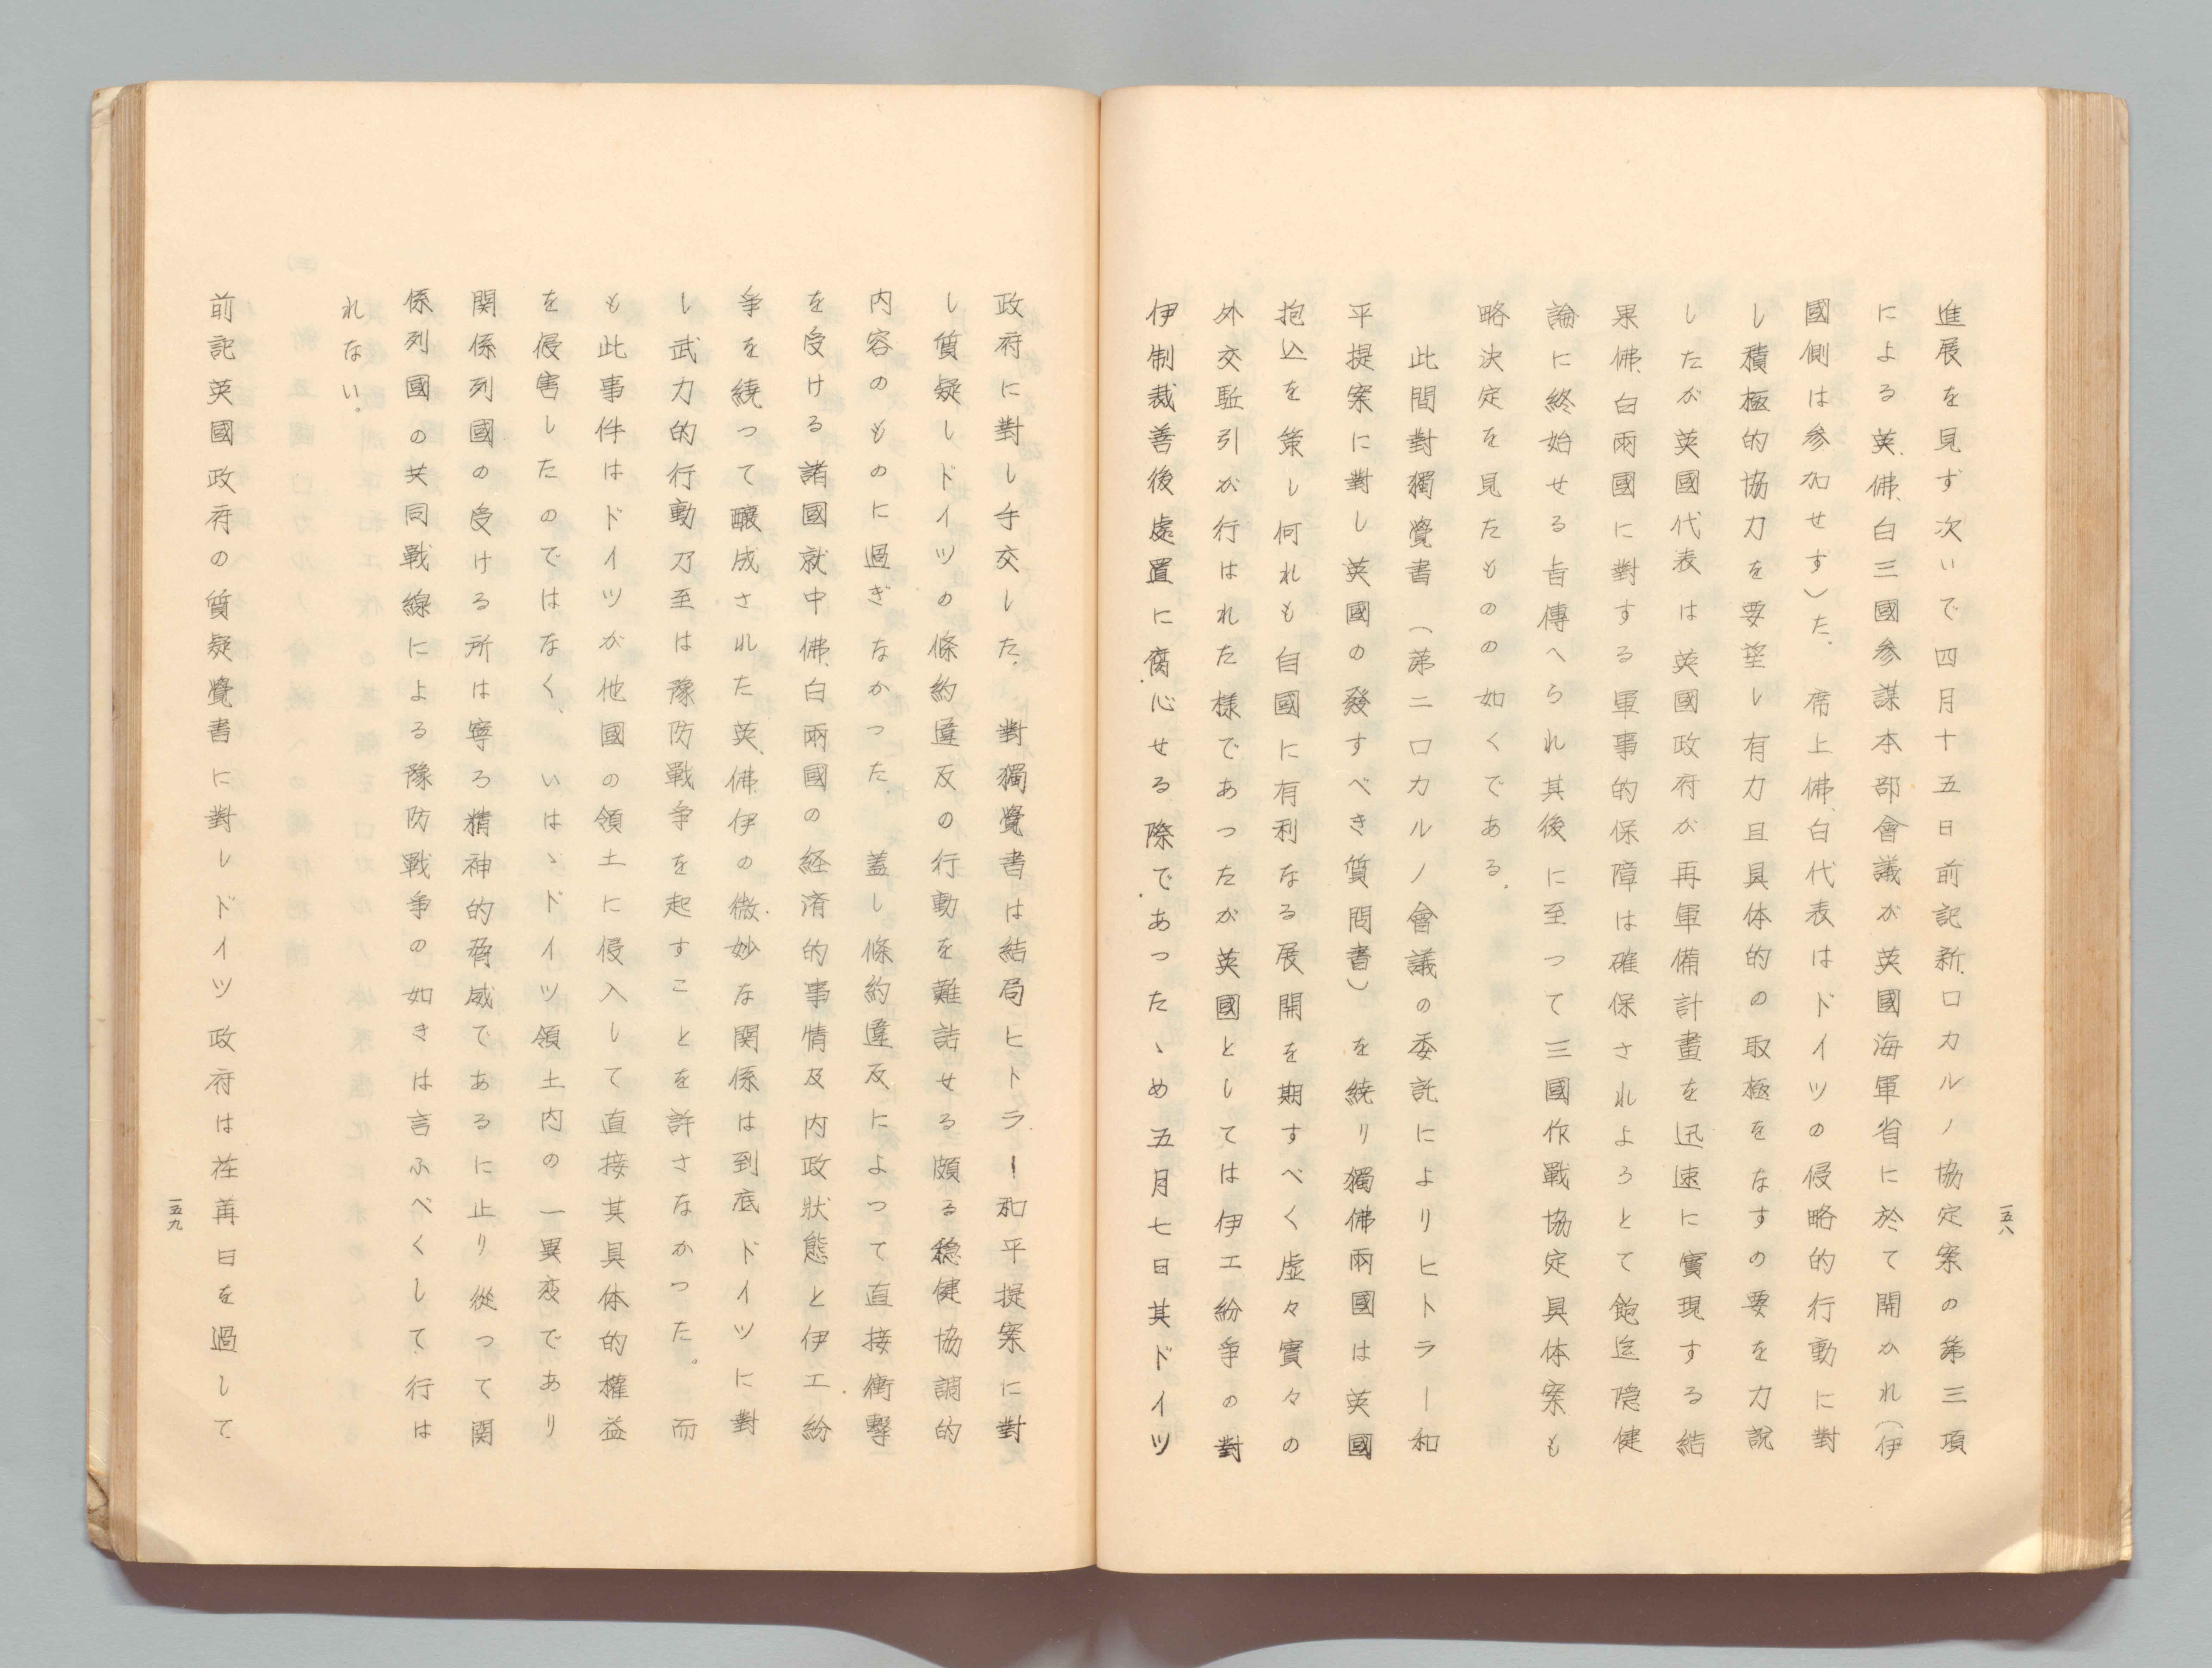 進展を見ず次いで四月十五日前記新ロカルノ協定案の第三項
による英、佛、白三國参謀本部會議が英國海軍省に於て開かれ(伊
國側は参加せず)た。席上佛、白代表はドイツの侵略的行動に對
し積極的協力を要望し有力且具体的の取極をなすの要を力説
したが英國代表は英國政府が再軍備計畫を迅速に實現する結
果佛、白兩國に對する軍事的保障は確保されようとて飽迄隠健
論に終始せる旨傳へられ其後に至つて三國作戰協定具体案も
略決定を見たものの如くである。
此間對獨覺書(第二ロカルノ會議の委託によりヒトラー和
平提案に對し英國の發すべき質問書)を繞り獨佛兩國は英國
抱込を策し何れも自國に有利なる展開を期すべく虚々實々の
外交駈引が行はれた様であつたが英國としては伊エ紛争の對
伊制裁善後處置に腐心せる際であつたゝめ五月七日其ドイツ
一五八
政府に對し手交した。對獨覺書は結局ヒトラー和平提案に對
し質疑しドイツの條約違反の行動を難詰せる頗る穏健協調的
内容のものに過ぎなかつた。蓋し條約違反によつて直接衝擊
を受ける諸國就中佛、白兩國の経済的事情及内政狀態と伊エ紛
争を繞つて醸成された英、佛、伊の微妙な関係は到底ドイツに對
し武力的行動乃至は豫防戰争を起すことを許さなかつた。而
も此事件はドイツが他國の領土に侵入して直接其具体的權益
を侵害したのではなく、いはゞドイツ領土内の一異変であり
関係列國の受ける所は寧ろ精神的脅威であるに止り從つて関
係列國の共同戰線による豫防戰争の如きは言ふべくして行は
れない。
前記英國政府の質疑覺書に對しドイツ政府は荏苒日を過して
一五九